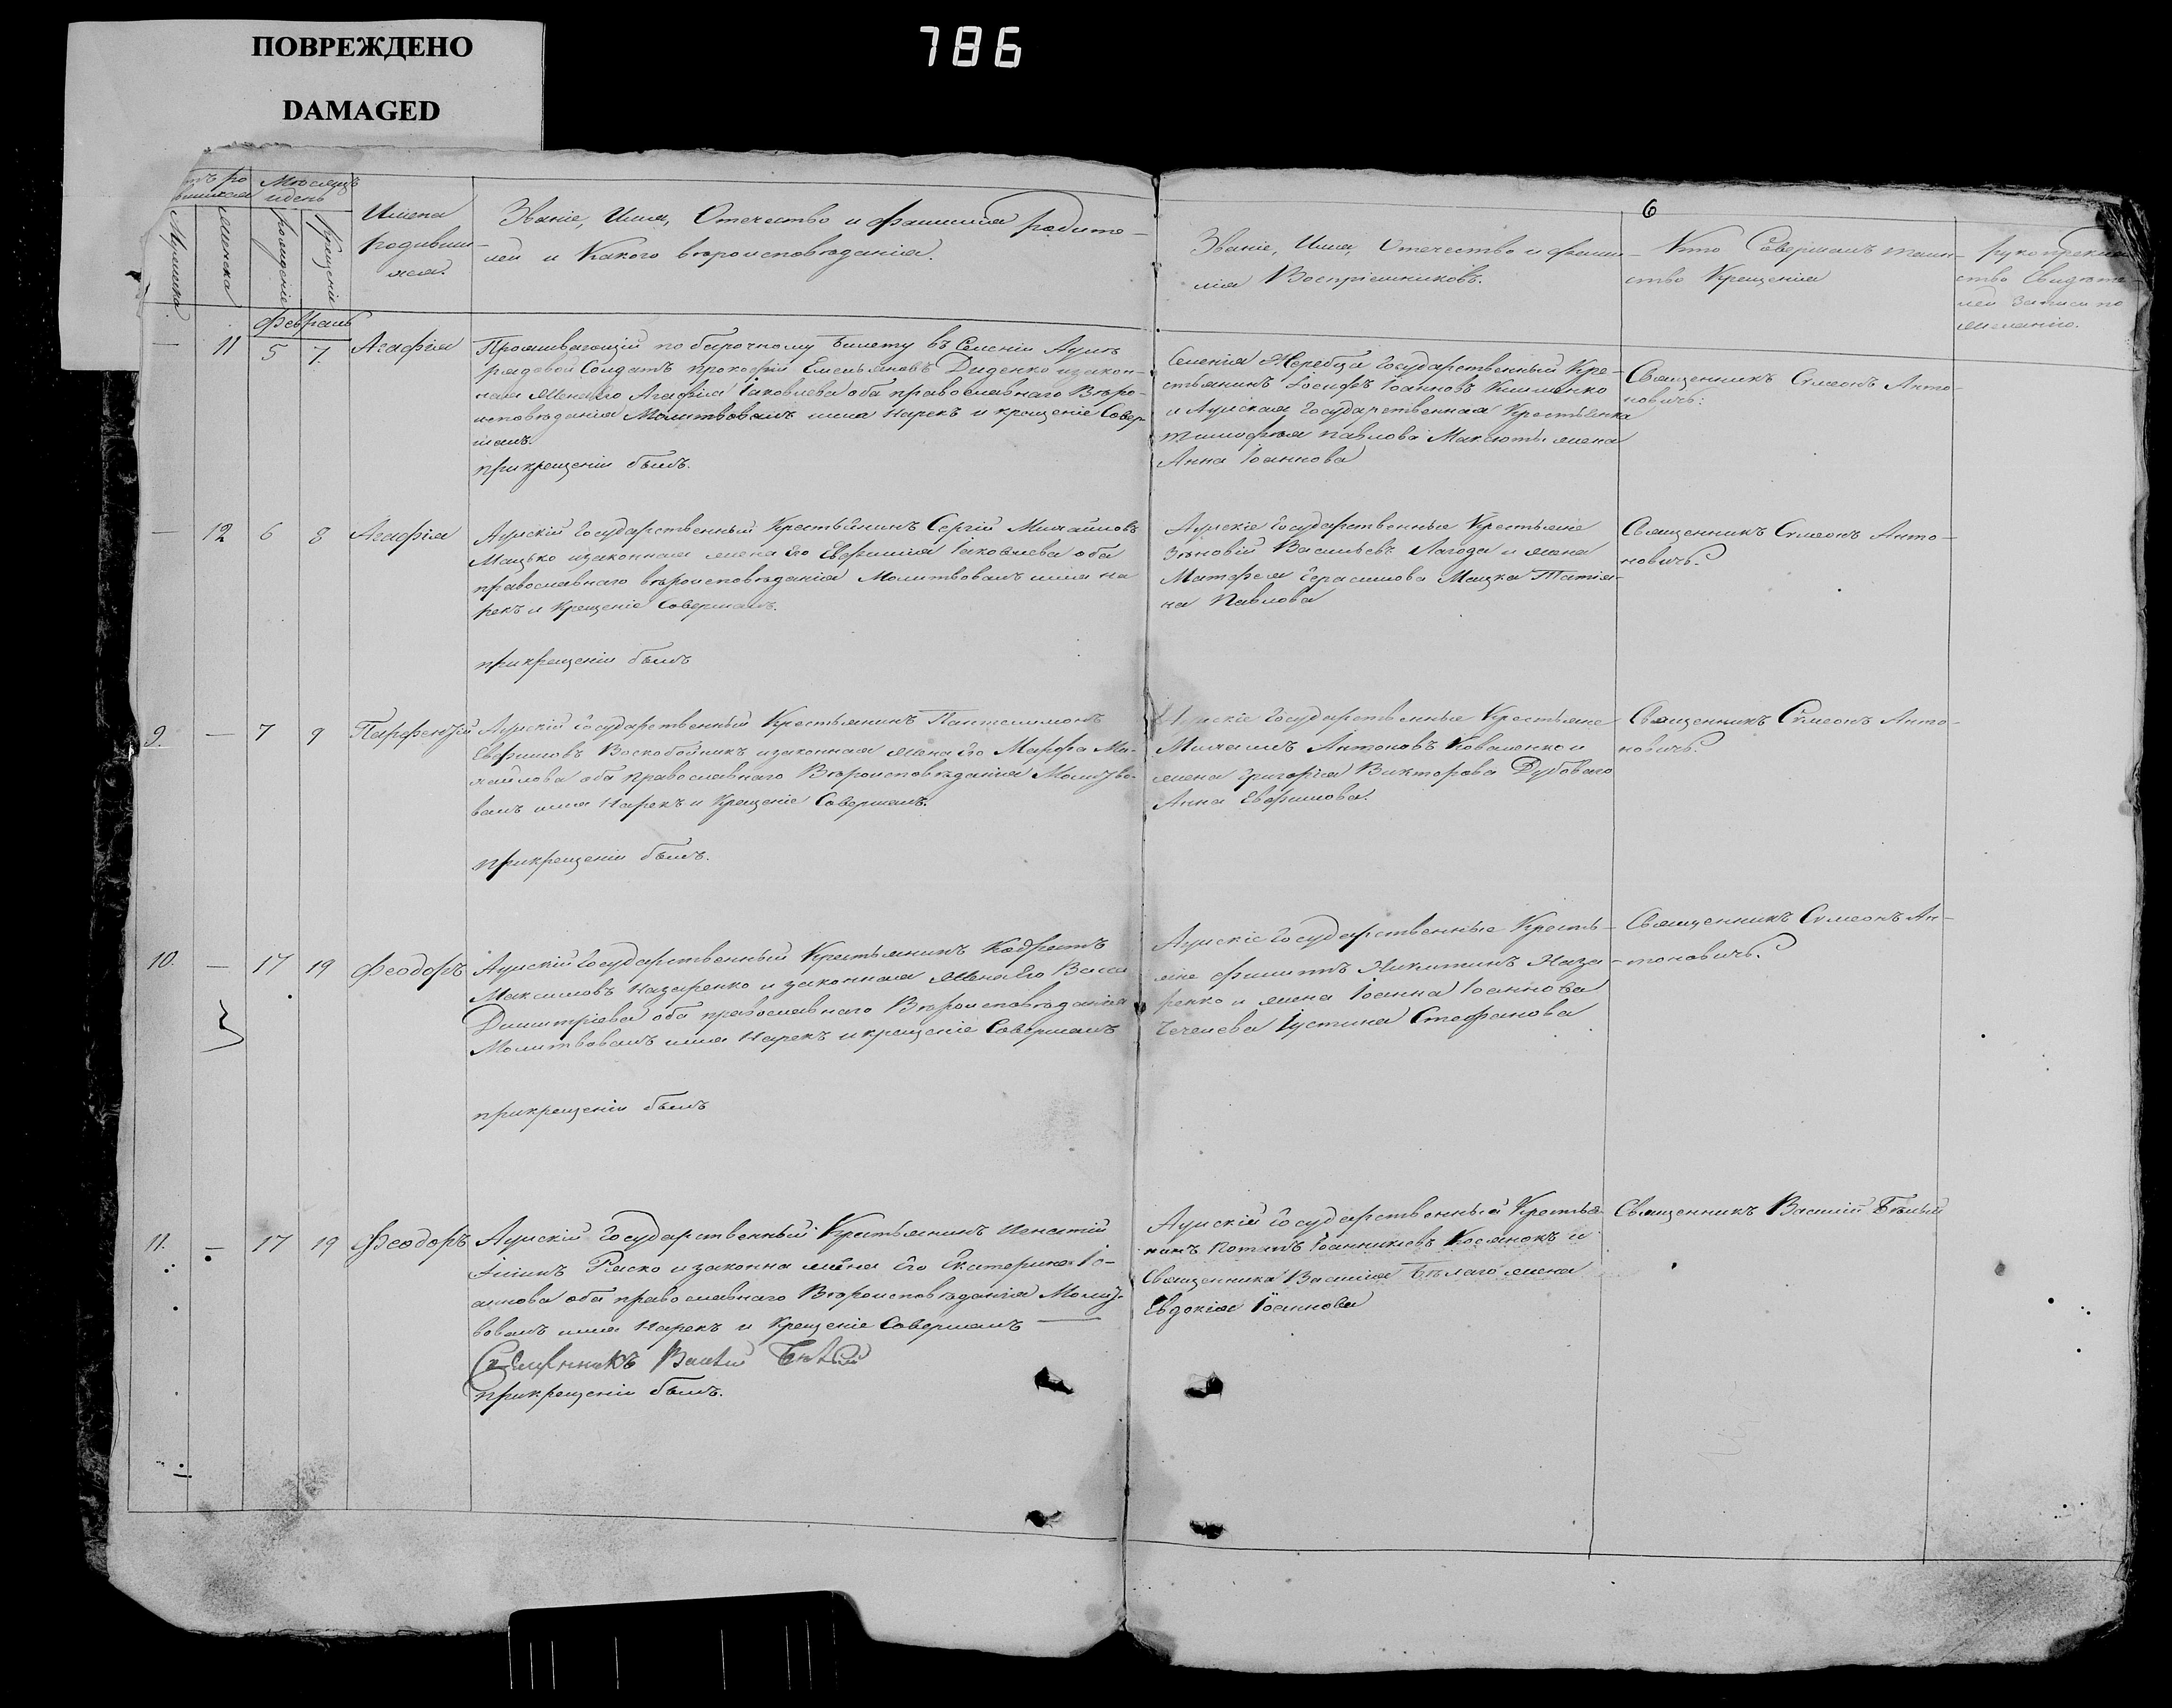 ПОВРЕЖДЕНО
DAMAGED
786
6
Мѣсяцъ
и день
Мужеска
Женска
рожденіе
крещеніе
Имена
родивши-
яся.
Званіе, Имя, Отечество и фамилія родите-
лей и Какого вѣроисповѣданія.
Званіе, Имя, Отечество и фами-
лія Воспріемниковъ.
Кто Совершалъ таин-
ство Крещенія
рукоприклад
ство Свидѣте
лей записи по
желанію.
Февраль
— 11 5 7. Агафія
Проживающій по билету въ Селеніи
рядовой Солдатъ прокофій Емельяновъ Диденко изакон-
ная жена его Агафія Іаковлева оба православнаго Вѣро-
исповѣданія Молитвовалъ имя Нарекъ и крещеніе Совер-
шалъ.
прикрещеніи былъ.
Селенія Жеребца Государственный Кре-
стьянинъ Іосифъ Іоанновъ Клименко
и Государственная Крестьянка
павлова жена
Анна Іоаннова
Священникъ Сѵмеонъ Анто-
новичъ:
— 12 6 8 Агафія
Государственный Крестьянинъ Сергій Михайловъ
Мацько изаконная жена его Евфимія Іаковлева оба
православнаго вѣроисповѣданія Молитвовалъ имя на
рекъ и Крещеніе Совершалъ.
прикрещеніи былъ
Государственные Крестьяне
Зѣновій Васильевъ Лагода и жена
Матфея Герасимова Мацка Татія-
на Павлова
Священникъ Сѵмеонъ Анто-
новичъ.
9. — 7 9 Парфентій
Государственный Крестьянинъ Пантелимонъ
Евфимовъ Воскобойникъ изаконная жена его Марфа Ми-
хайлова оба православнаго Вѣроисповѣданія Молитво-
валъ имя Нарекъ и Крещеніе Совершалъ.
прикрещеніи былъ.
Государственные Крестьяне
Михаилъ Антоновъ Коваленко и
жена Григорія Викторова Дубоваго
Анна Евфимова.
Священникъ Сѵмеонъ Анто-
новичъ.
10. — 17 19 Феодоръ
Государственный Крестьянинъ Кодратъ
Максимовъ Назаренко и законная жена Его Васса
Димитріева оба православнаго Вѣроисповѣданія
Молитвовалъ имя Нарекъ и крещеніе Совершалъ
прикрещеніи былъ
Государственные Кресть-
яне филиппъ Никитинъ Наза-
ренко и жена Іоанна Іоаннова
Чечелева Іустина Стефанова
Священникъ Сѵмеонъ Ан-
тоновичъ.
11. — 17 19 Феодоръ
Государственный Крестьянинъ Игнатій
Ряско и законна жена Его Екатерина Іо-
аннова оба православнаго Вѣроисповѣданія Молит-
вовалъ имя Нарекъ и Крещеніе Совершалъ —
Священникъ Василій Бѣлый
прикрещеніи былъ.
Государственный Крестья-
нинъ Потапъ Іоанникіевъ и
Священника Василія Бѣлаго жена
Евдокія Іоаннова
Священникъ Василій Бѣлый